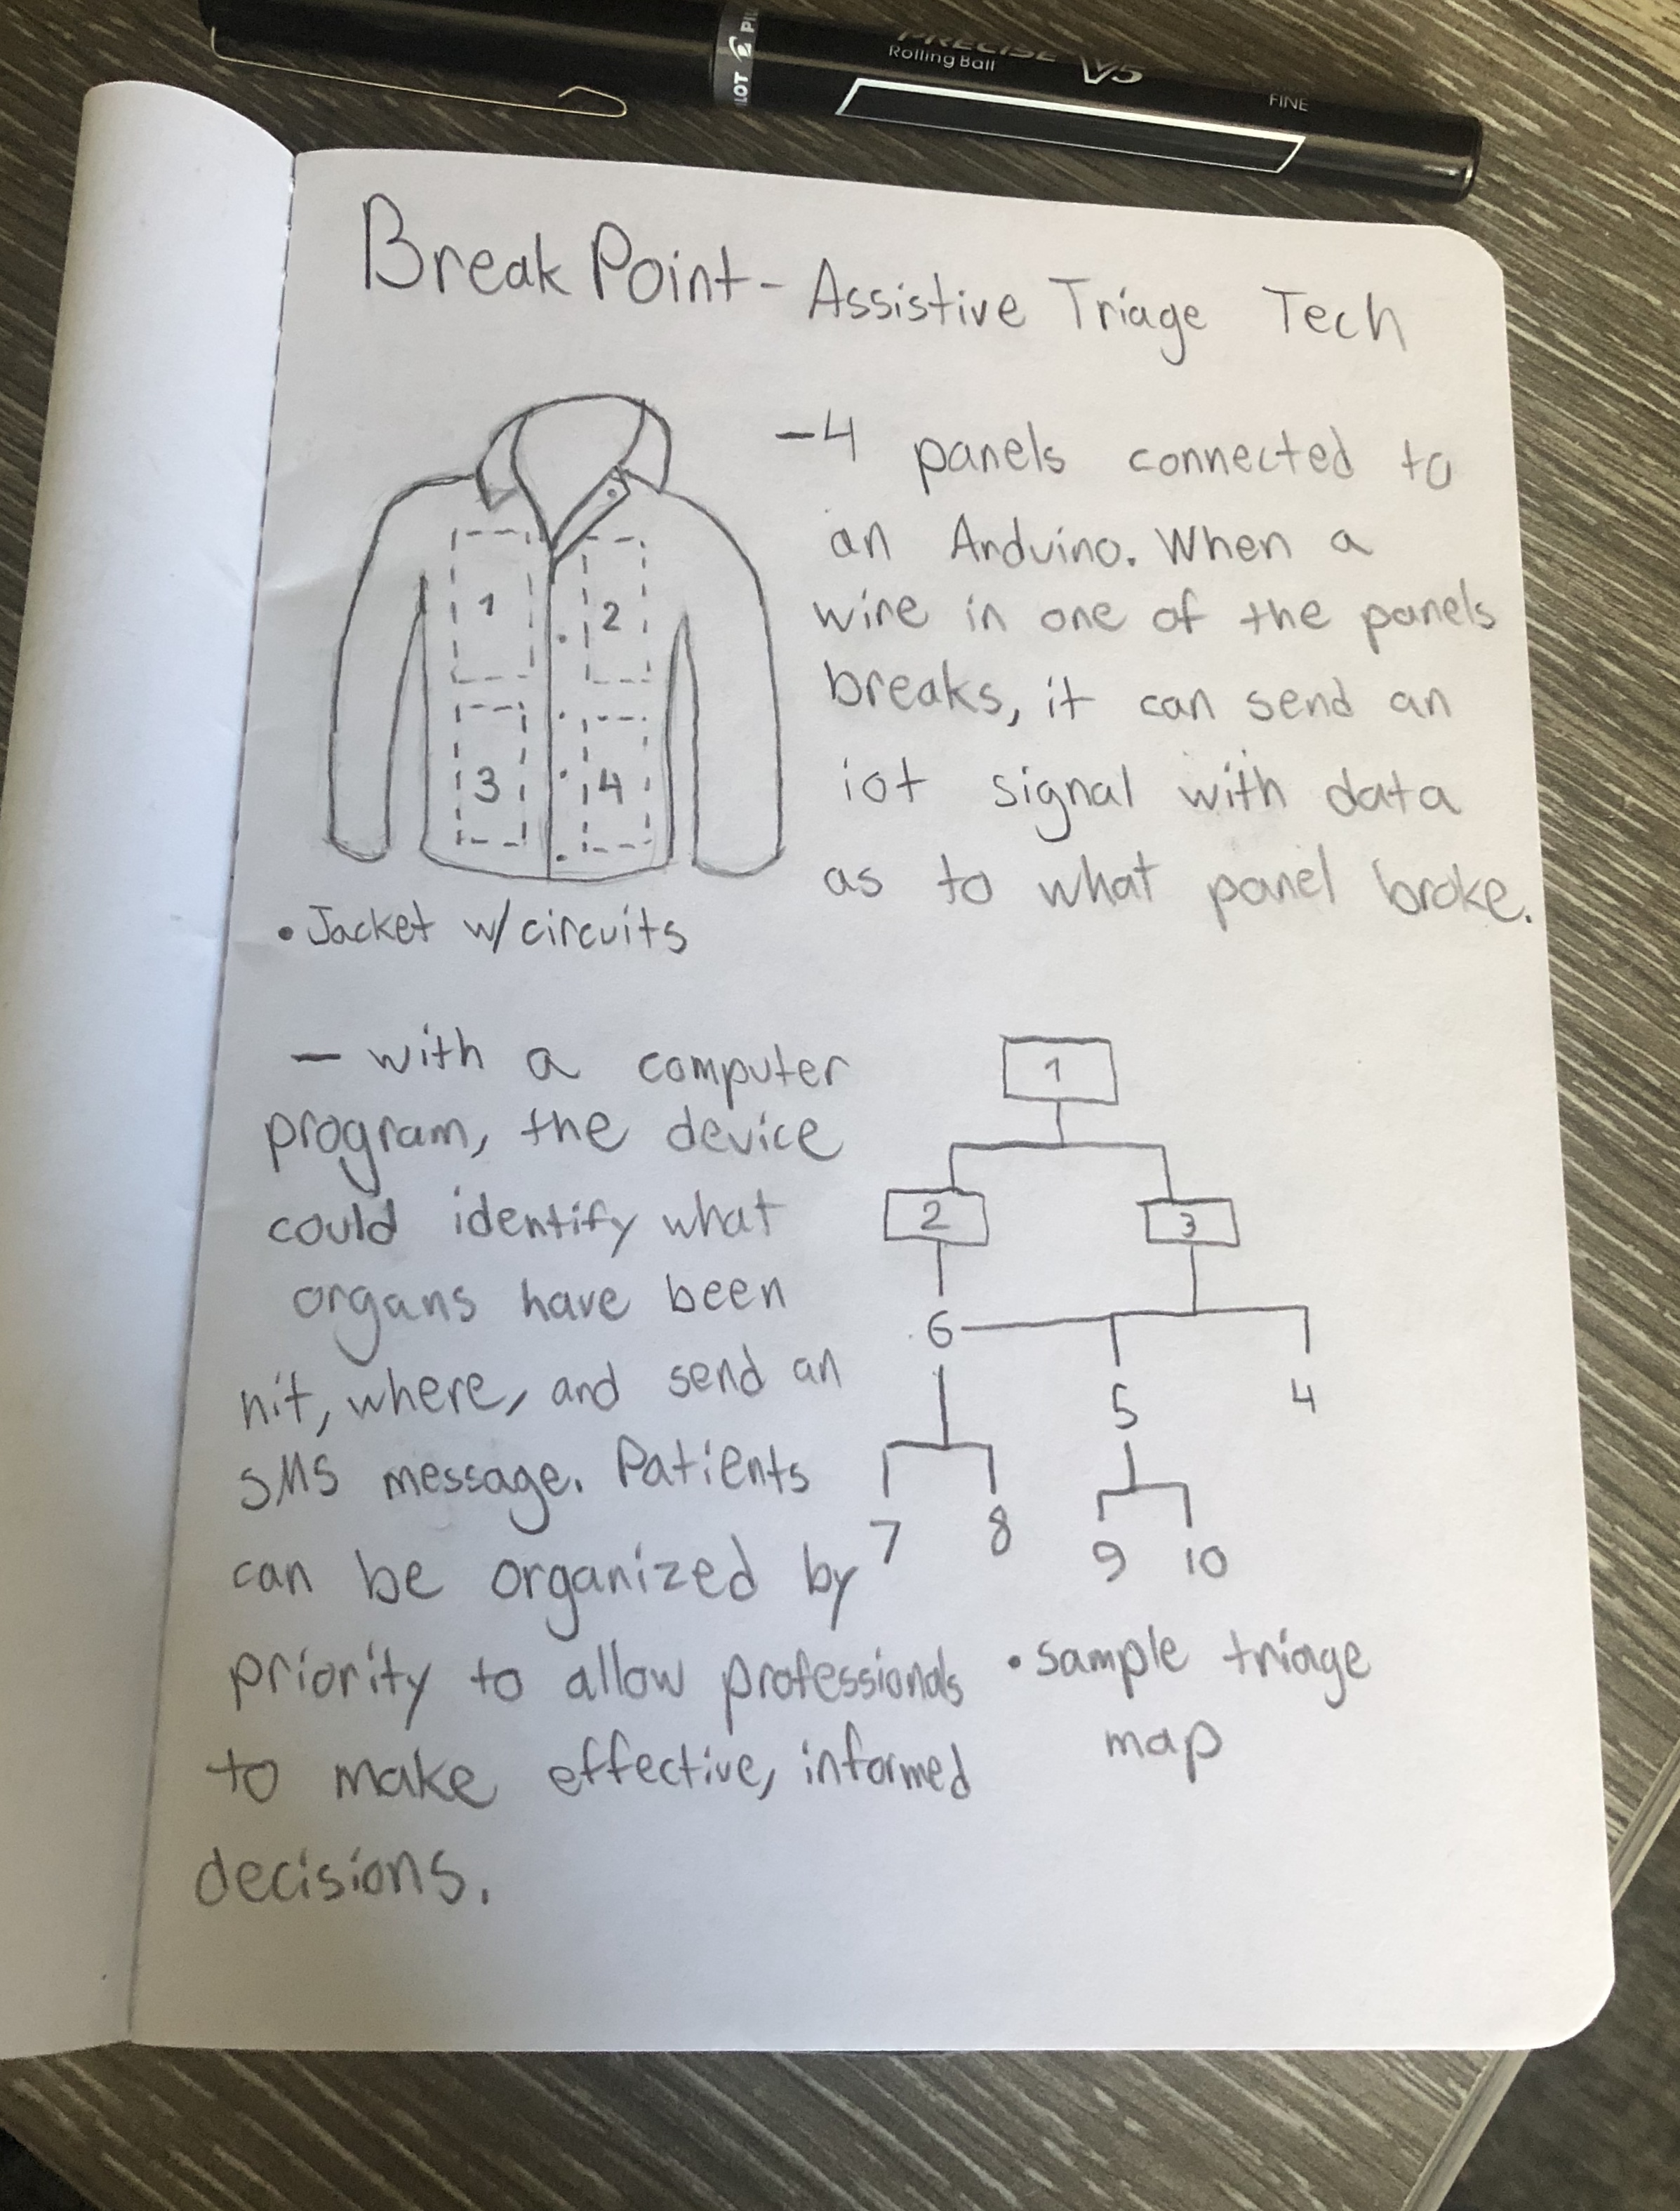 PILOT
PRECISE V5
Rolling Ball
FINE
Break Point - Assistive Triage Tech
1
2
3
4
• Jacket w/ circuits
- 4 panels connected to
an Arduino. When a
wire in one of the panels
breaks, it can send an
iot signal with data
as to what panel broke.
- with a computer
program, the device
could identify what
organs have been
hit, where, and send an
SMS message. Patients
can be organized by
priority to allow professionals
to make effective, informed
decisions.
1
2
3
6
5
4
7
8
9
10
• sample triage
map